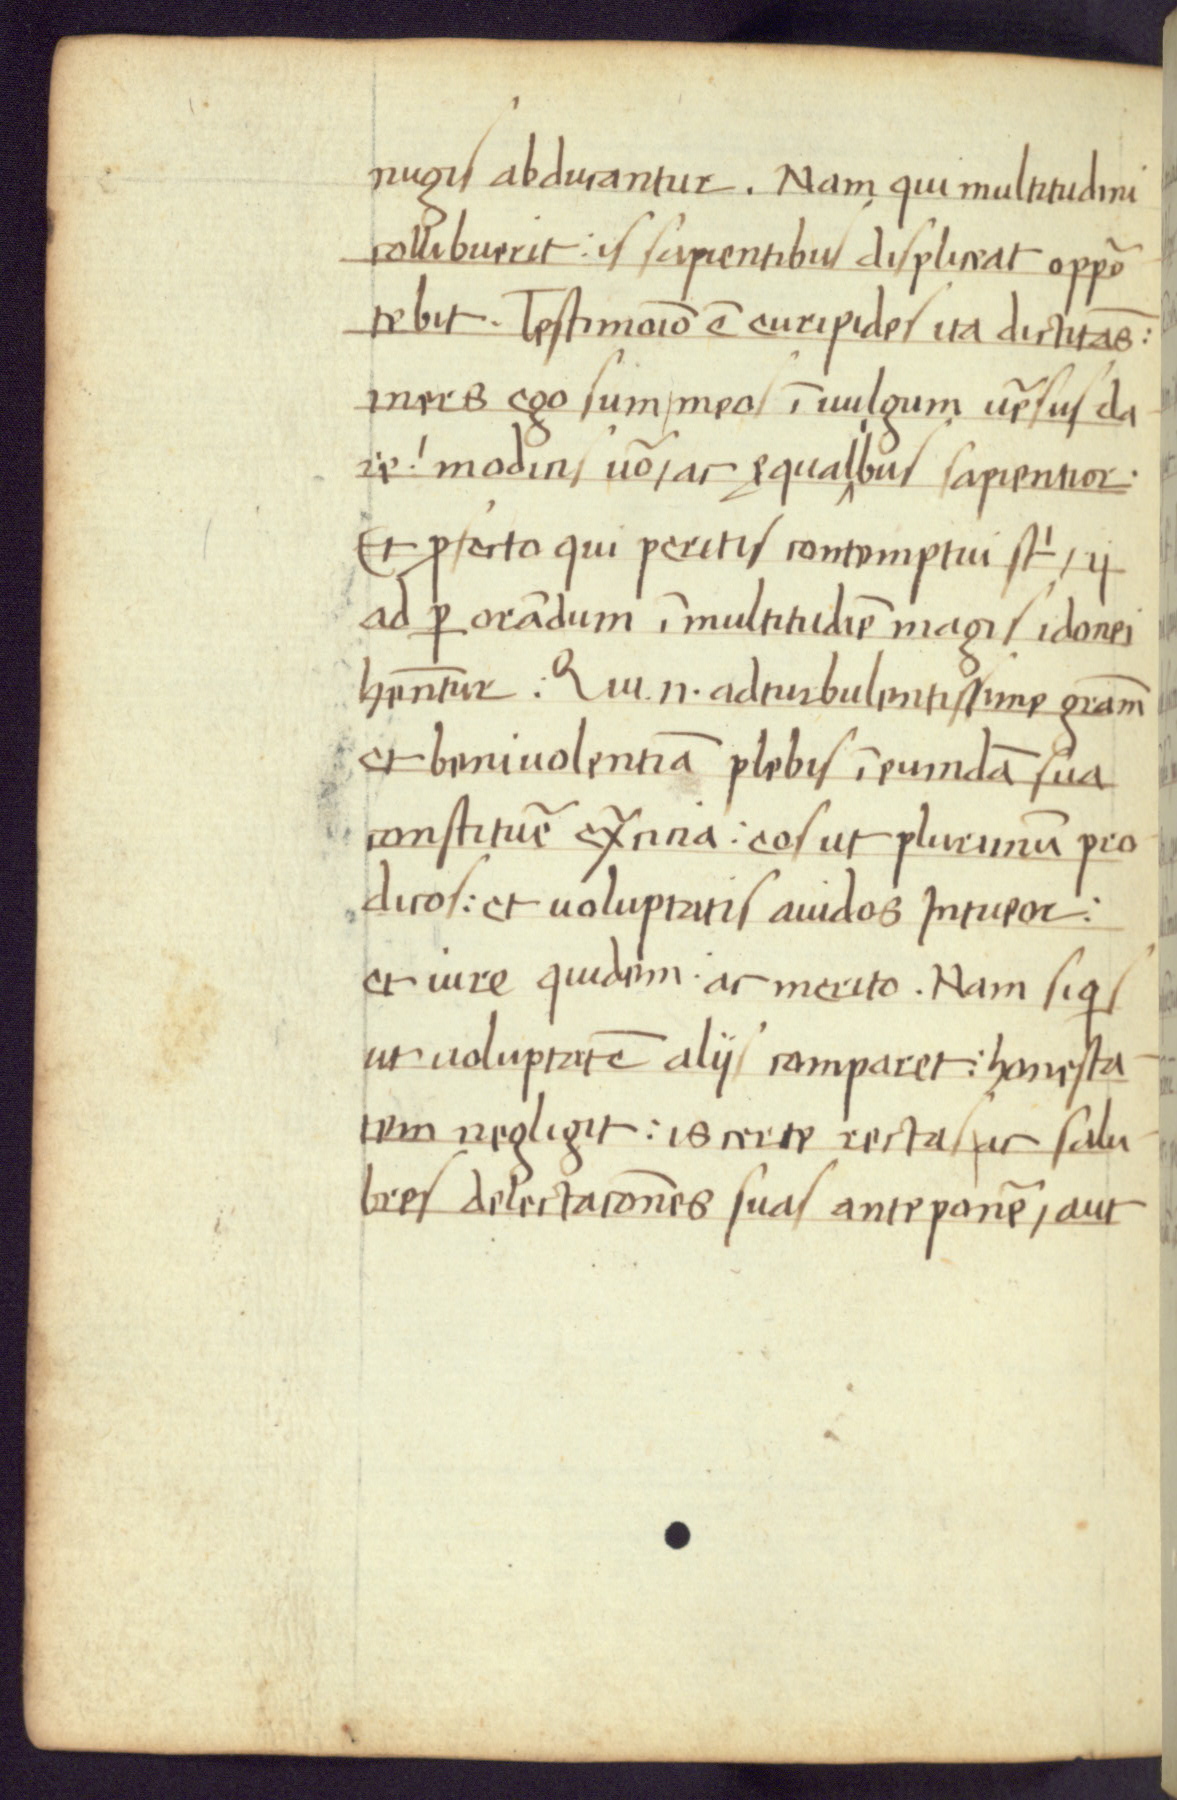 nugis abducantur. Nam qui multitudini
collibuerit: is sapientibus displiceat oppō
tebit. Testimōio ē euripides ita dictitās:
iners ego sum, meos ī uulgum uēsus da
re! modicis uō, ac ęqualibus sapientior.
Et ꝓfecto qui peritis contemptui st!, ij
ad ꝑ orādum ī multitudiē magis idonei
hēntur: Qui .n. ad turbulentissime grām̄
et beniuolentiā plebis ī eumdā sua
constituē exēcicia: eos ut plurimū pro
dicos: et uoluptatis auidos Intueor:
et iure quidem. ac merito. Nam siqs
ut uoluptatē alijs comparet: honesta
tem negligit: is certe rectas, ac salu
bres delectacōnes suas anteponē, aut